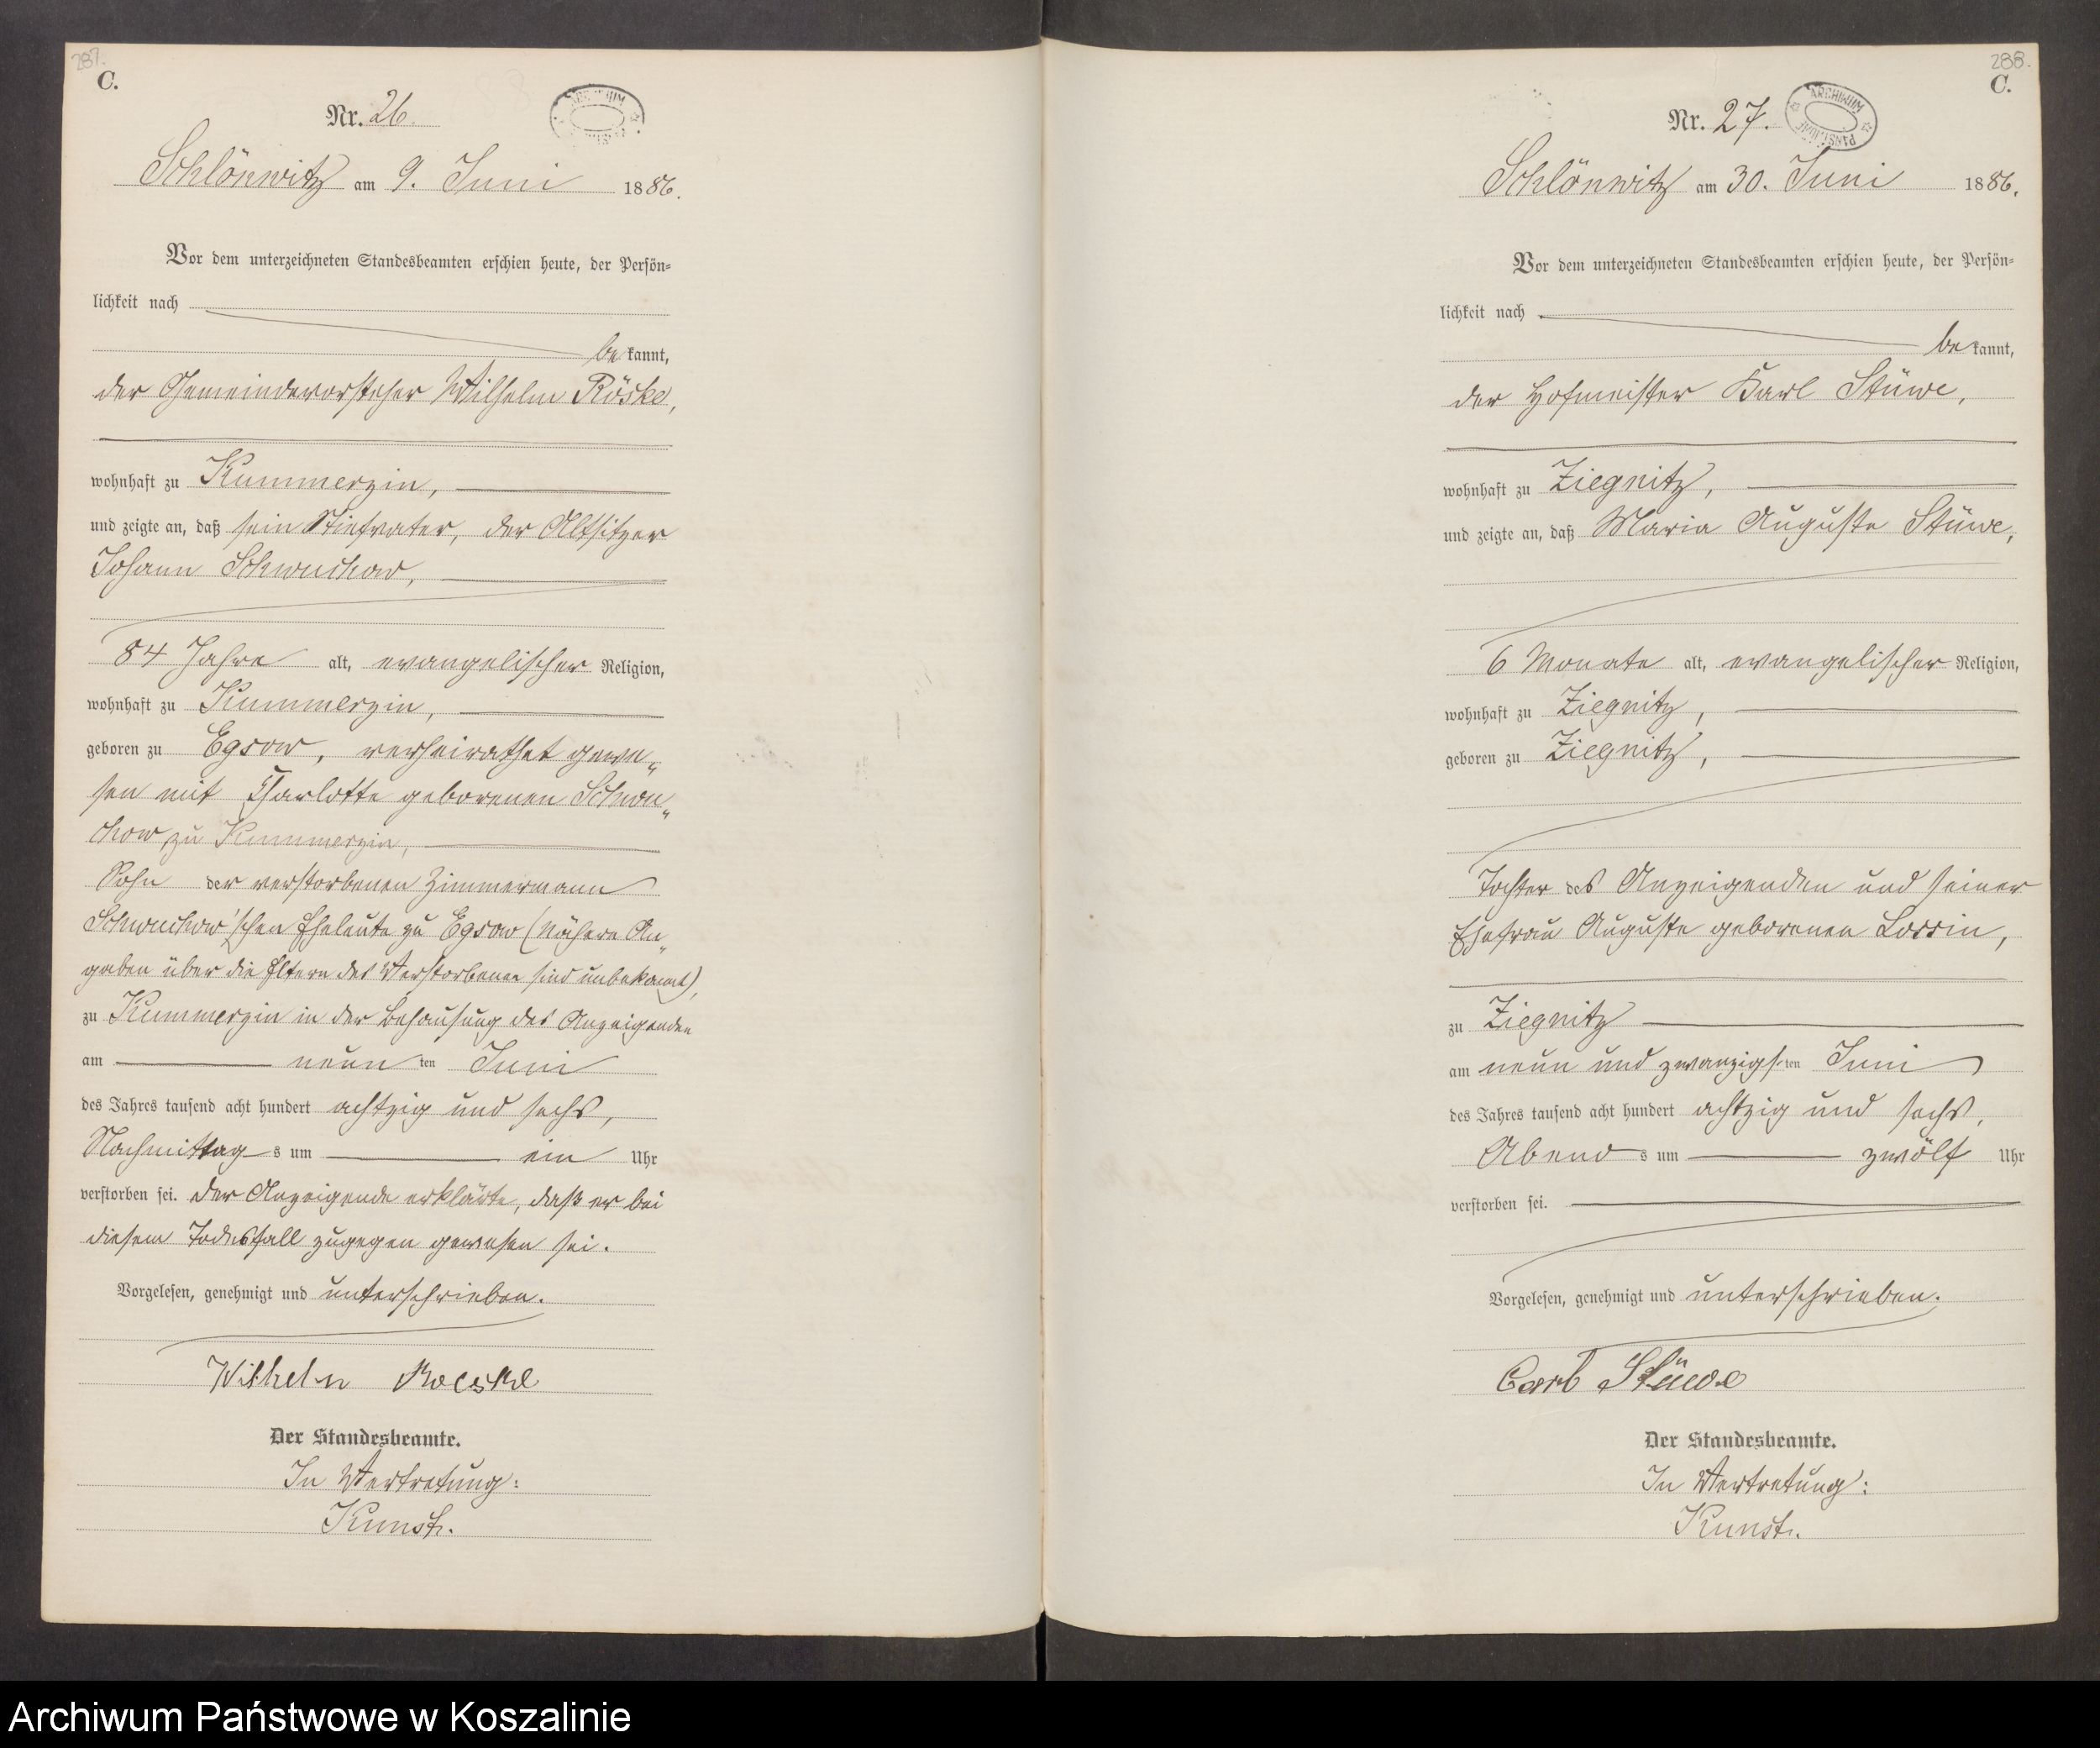 287.
C.
Nr. 26.
Schlönwitz am 9. Juni 1886.
Vor dem unterzeichneten Standesbeamten erschien heute, der Persön=
lichkeit nach
bekannt,
der Gemeindevorsteher Wilhelm Röske,
wohnhaft zu Kummerzin,
und zeigte an, daß sein Stiefvater, der Altsitzer
Johann Schwuchow,
84 Jahre alt, evangelischer Religion,
wohnhaft zu Kummerzin,
geboren zu Egsow, verheirathet gewe„
sen mit Charlotte geborenen Schwu„
chow zu Kummerzin,
Sohn der verstorbenen Zimmermann
Schwuchow'schen Eheleute zu Egsow (Nähere An„
gaben über die Eltern des Verstorbenen sind unbekannt),
zu Kummerzin in der Behausung des Anzeigenden
am neunten Juni
des Jahres tausend acht hundert achtzig und sechs,
Nachmittags um ein Uhr
verstorben sei. Der Anzeigende erklärte, daß er bei
diesem Todesfall zugegen gewesen sei.
Vorgelesen, genehmigt und unterschrieben.
Wilhelm Roeske
Der Standesbeamte.
In Vertretung:
Kunst.
288.
C.
Nr. 27.
ARCHIWUM
Schlönwitz am 30. Juni 1886.
Vor dem unterzeichneten Standesbeamten erschien heute, der Persön=
lichkeit nach
bekannt,
der Hofmeister Karl Stüwe,
wohnhaft zu Ziegnitz,
und zeigte an, daß Maria Auguste Stüwe,
6 Monate alt, evangelischer Religion,
wohnhaft zu Ziegnitz,
geboren zu Ziegnitz,
Tochter des Anzeigenden und seiner
Ehefrau Auguste geborenen Lossin,
zu Ziegnitz
am neun und zwanzigsten Juni
des Jahres tausend acht hundert achtzig und sechs,
Abends um zwölf Uhr
verstorben sei.
Vorgelesen, genehmigt und unterschrieben.
Carl Stüwe
Der Standesbeamte.
In Vertretung:
Kunst.
Archiwum Państwowe w Koszalinie